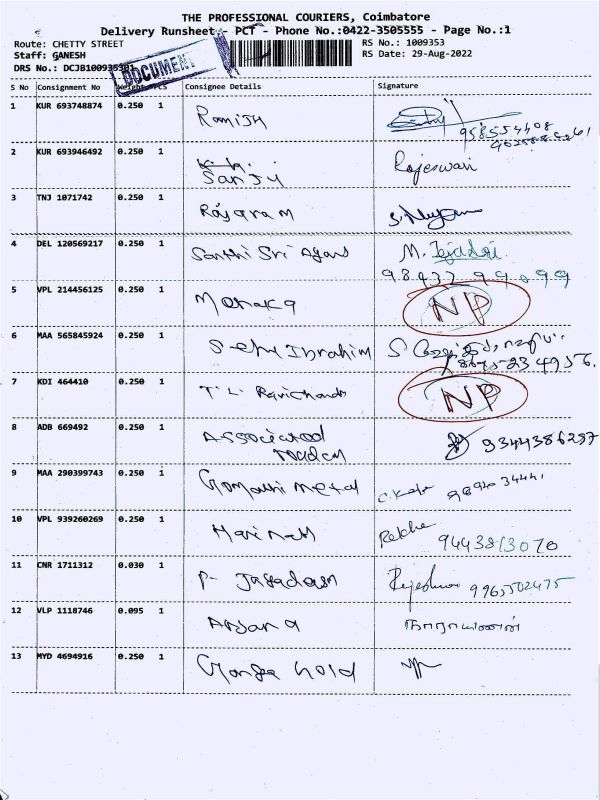 THE PROFESSIONAL COURIERS, Coimbatore
Delivery Runsheet - PCT - Phone No.:0422-3505555 - Page No.:1
Route: CHETTY STREET RS No.: 1009353
Staff: GANESH RS Date: 29-Aug-2022
DRS No.: DCJB1009353
DOCUMENT
S No Consignment No Weight PCS Consignee Details Signature
1 KUR 693748874 0.250 1 Ramish
2 KUR 693946492 0.250 1 Sanju Rajeswari
3 TNJ 1071742 0.250 1 Rajaram
4 DEL 120569217 0.250 1 Santhi Sri Agans M. Tejasri
98432 99099
5 VPL 214456125 0.250 1 Menaka NP
6 MAA 565845924 0.250 1 Ibrahim
7 KDI 464410 0.250 1 T. L. NP
8 ADB 669492 0.250 1 Associated 9344386297
9 MAA 290399743 0.250 1 Gomathi metal
10 VPL 939260269 0.250 1 Harinath Rekha
9443813070
11 CNR 1711312 0.030 1 P. Jagadesh 9965502475
12 VLP 1118746 0.095 1 Anjana நாராயணன்
13 MYD 4694916 0.250 1 Ganga Gold